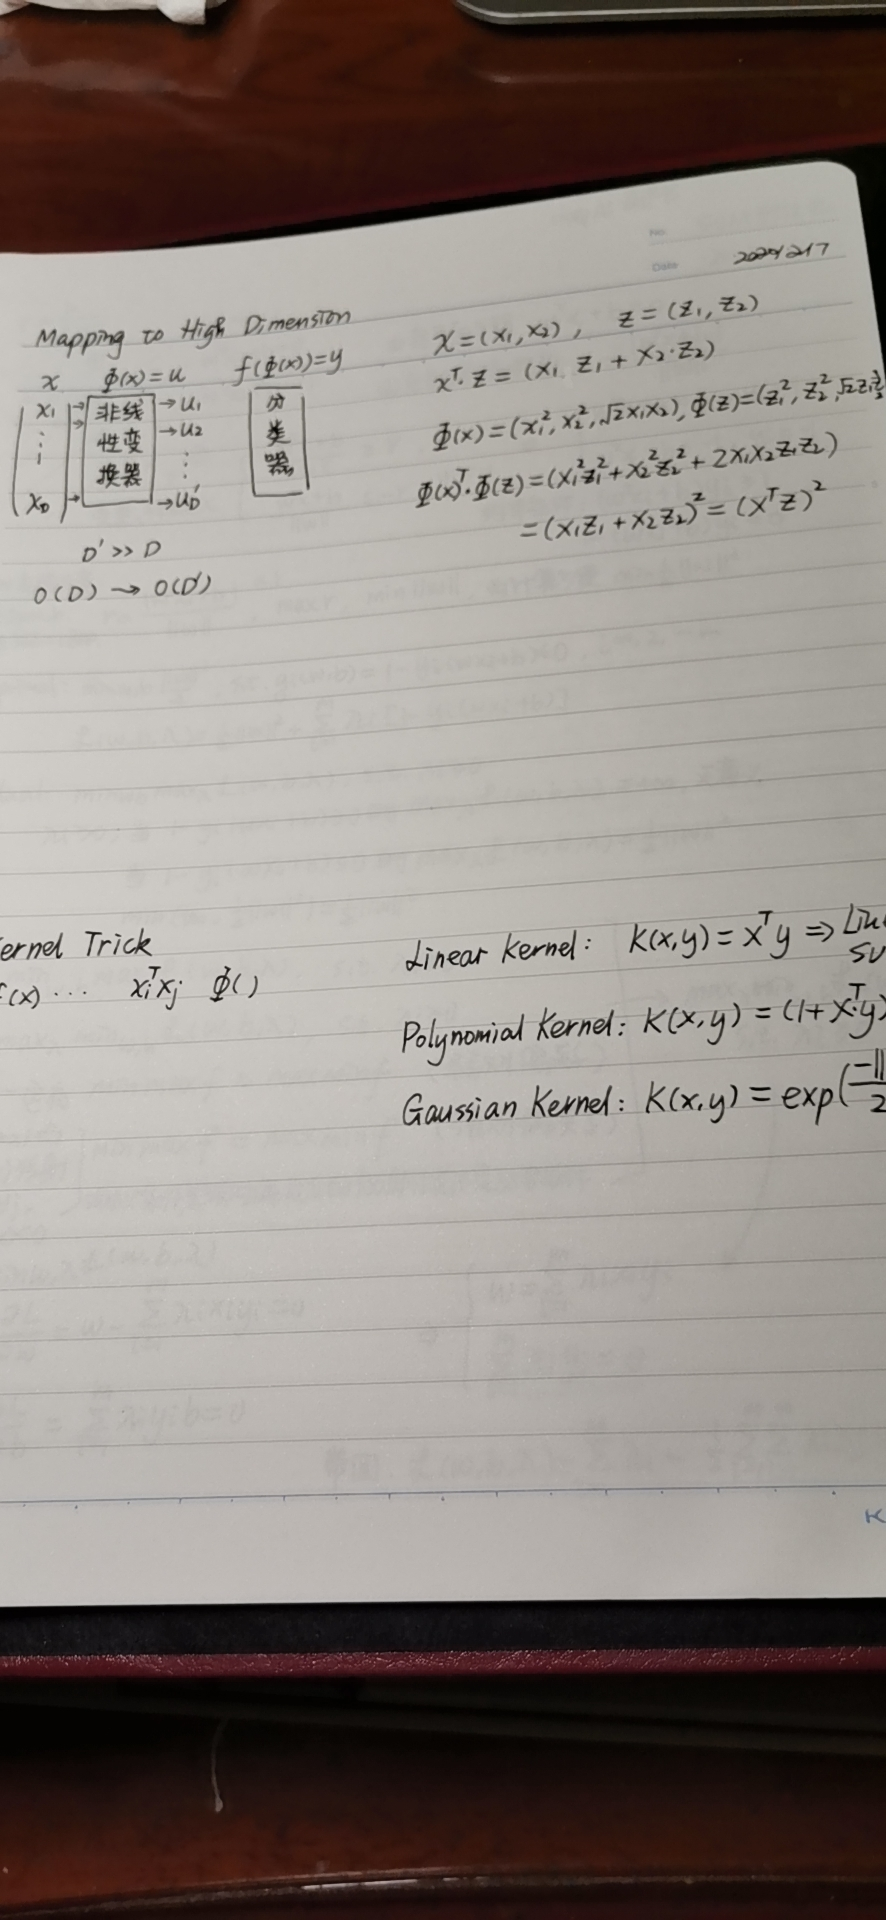 No.
Date
Mapping to High Dimension
x Φ(x)=u f(Φ(x))=y
x₁ 非线 → u₁ 分
⋮ 性变 → u₂ 类
换器 ⋮ 器
x_D → u_D'
D' >> D
O(D) → O(D')
x=(x₁,x₂), z=(z₁,z₂)
xᵀ·z = (x₁ z₁ + x₂·z₂)
Φ(x)=(x₁²,x₂²,√2x₁x₂), Φ(z)=(z₁²,z₂²,√2z₁z₂
Φ(x)ᵀ·Φ(z)=(x₁²z₁²+x₂²z₂²+2x₁x₂z₁z₂)
=(x₁z₁+x₂z₂)²=(xᵀz)²
ernel Trick
f(x) ... xᵢᵀxⱼ Φ()
Linear Kernel: K(x,y)=xᵀy ⇒
Polynomial Kernel: K(x,y)=(1+xᵀ·y)
Gaussian Kernel: K(x,y)=exp(-||/2
K